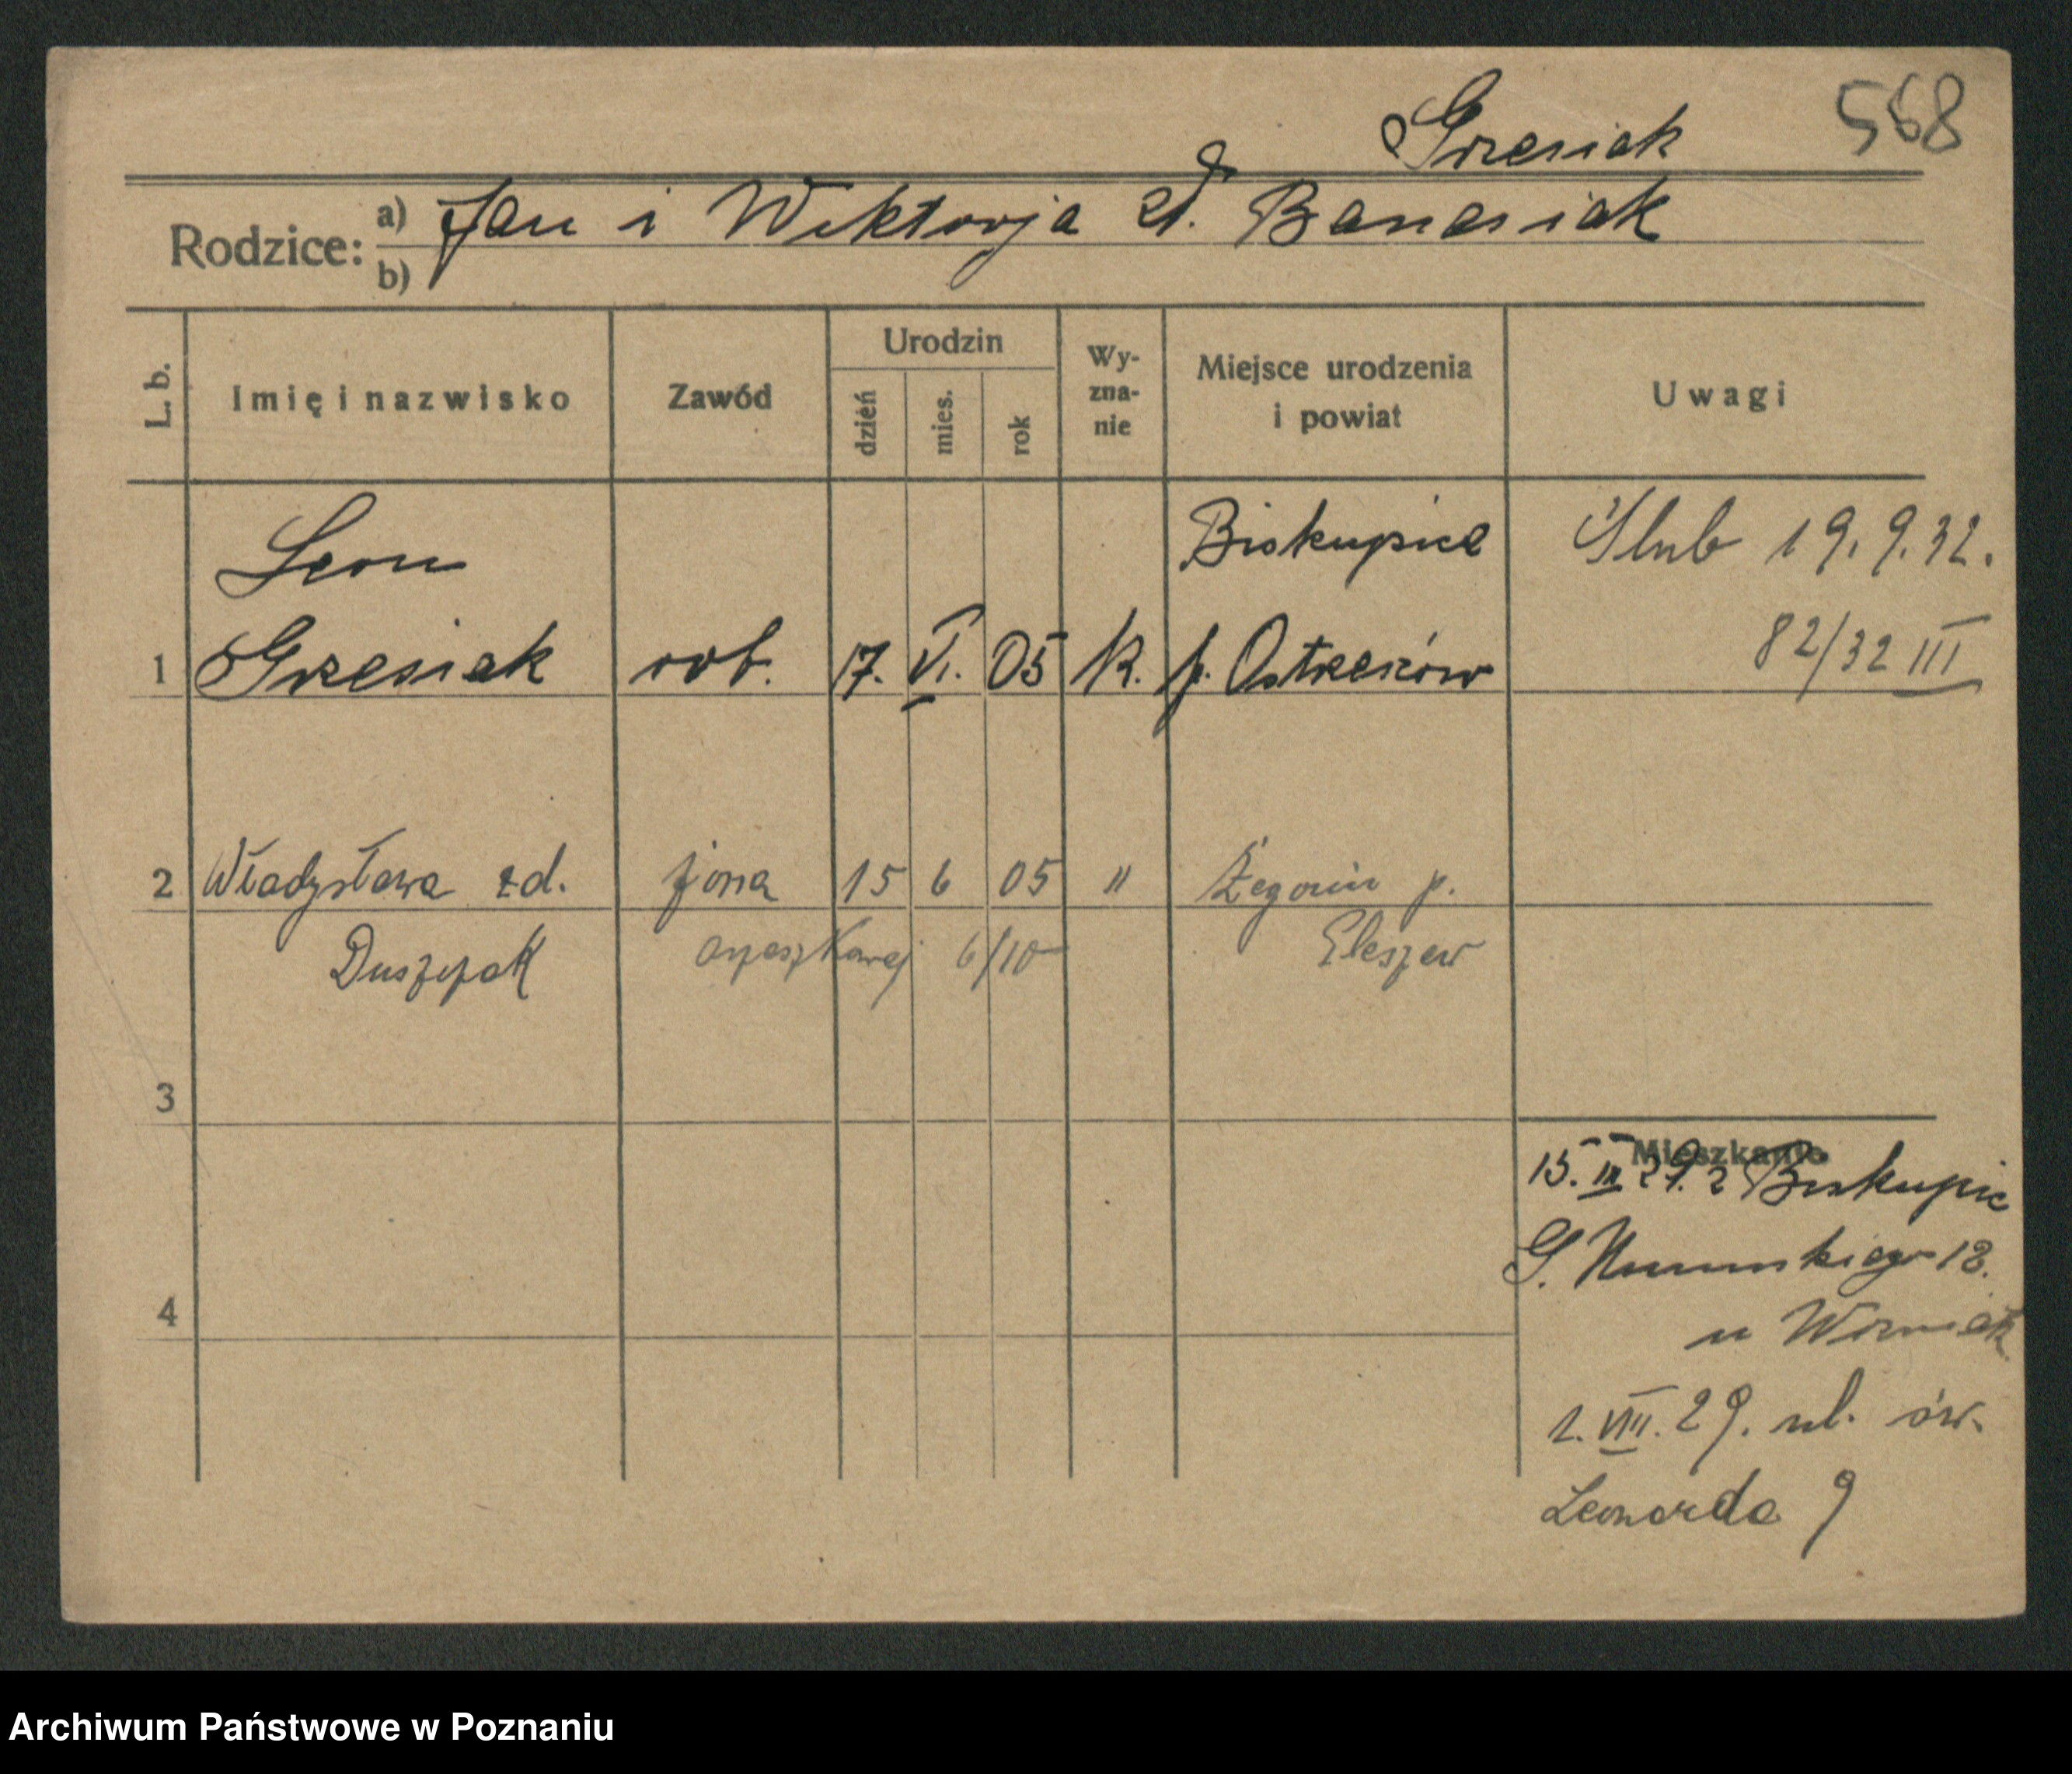 568
Grzesiak
Rodzice: a) Jan i Wiktorja zd. Banasiak
b)
L. b. Imię i nazwisko Zawód Urodzin dzień mies. rok Wyznanie Miejsce urodzenia i powiat Uwagi
Leon Biskupice Ślub 19.9.32.
1 Grzesiak rob. 17. VI. 05 k. p. Ostrzeszów 82/32 III
2 Władysława zd. żona 15 6 05 " p.
Duszczak 6/10
3
Mieszkanie
15. III 29. z Biskupic
G. 18.
4
u Woźniak
1. VIII. 29. ul. św.
Leonarda 9
Archiwum Państwowe w Poznaniu